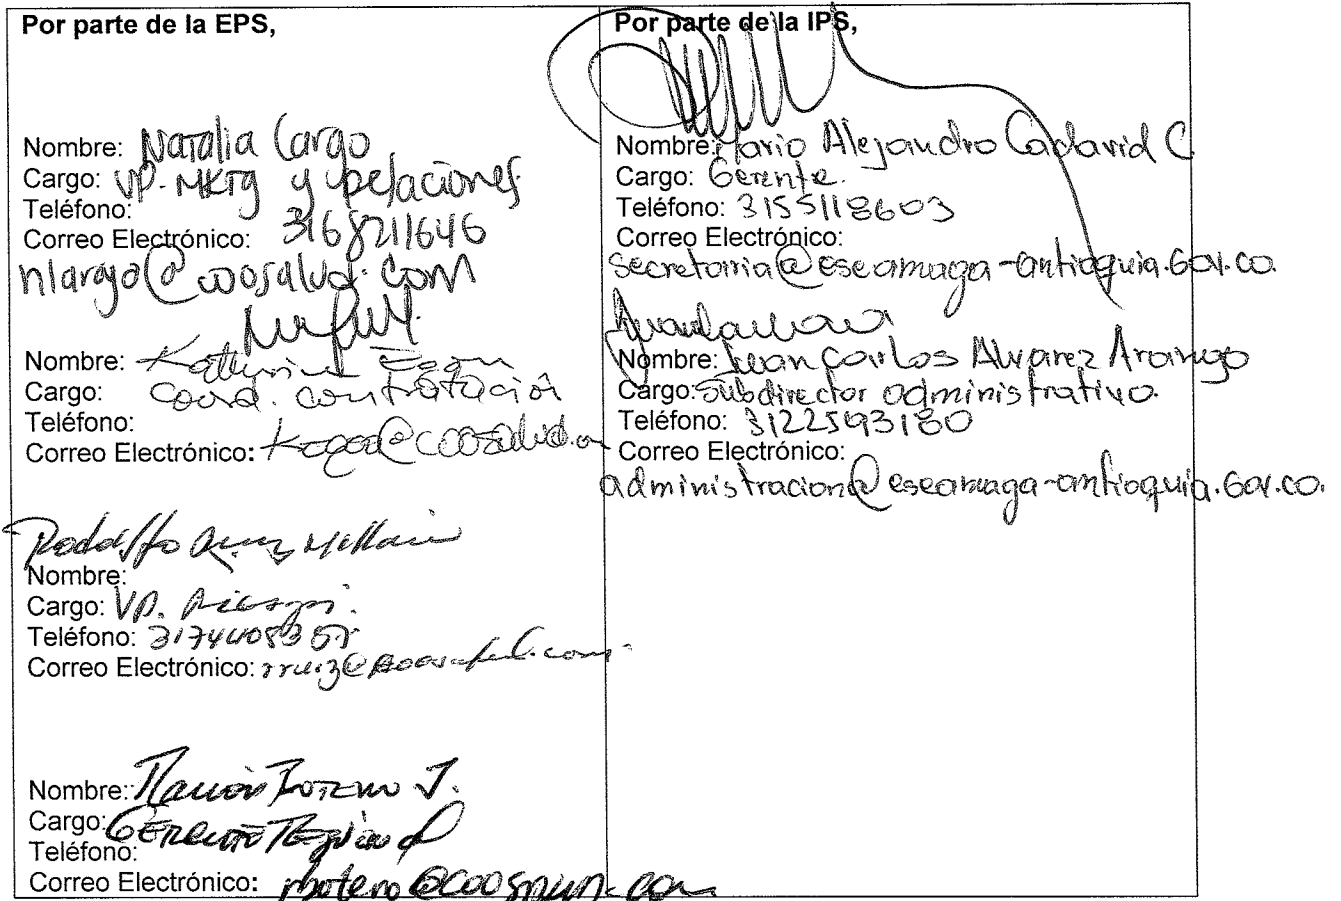 Por parte de la EPS,
Nombre: Natalia Largo
Cargo: VP. MKTg y relaciones
Teléfono: 3168211646
Correo Electrónico:
nlargo@coosalud.com
Nombre: Katherine
Cargo: Coord. contratación
Teléfono:
Correo Electrónico:
Rodolfo
Nombre:
Cargo: VP. Riesgos.
Teléfono:
Correo Electrónico: rruiz@coosalud.com
Nombre: Ramón Botero J.
Cargo: Gerente Regional
Teléfono:
Correo Electrónico: rbotero@coosalud.com
Por parte de la IPS,
Nombre: Mario Alejandro Cadavid C
Cargo: Gerente.
Teléfono: 3155118603
Correo Electrónico:
secretaria@eseamaga-antioquia.Gov.co.
Nombre: Juan Carlos Alvarez Arango
Cargo: Subdirector administrativo.
Teléfono: 3122593180
Correo Electrónico:
administracion@eseamaga-antioquia.Gov.co.